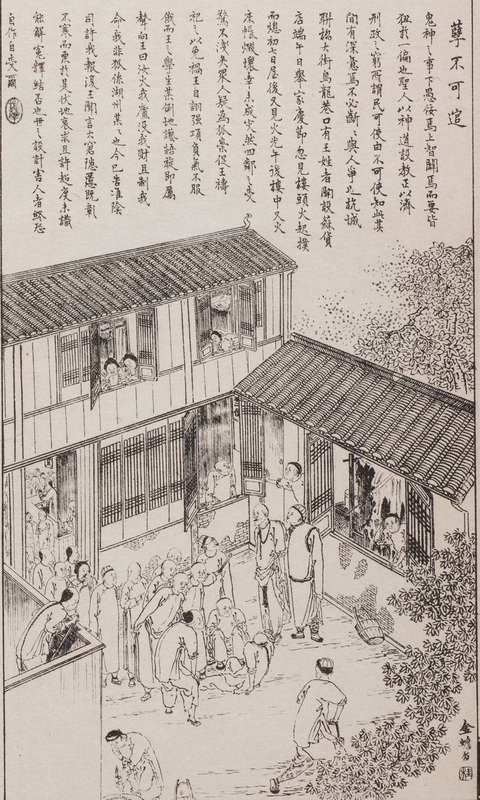 孽不可逭
鬼神之事下愚佞焉上智闢焉而要皆
狃於一偏也聖人以神道設教正以濟
刑政之窮所謂民可使由不可使知此其
間有深意焉不必斷斷與人爭也杭城
聯橋大街烏龍巷口有王姓者開設蘇貨
店端午日舉家慶節忽見樓頭火起撲
而熄初七日屋後又見火光午後樓中又火
床帳燬壞幸未成災然四鄰之受
驚不淺矣眾人疑為狐祟促王禱
祀以免禍王自詡强項負氣不服
俄而王之學生某倒地譫語旋即厲
聲向王曰汝欠我沒我財且制我
命我非狐係湖州某某也今已告准陰
司許我報復王聞言大窘
不寒而栗於其伏地哀求且許超度未識
能解寃釋結否也世之設計害人者終恐
自作自受爾
金蟾香